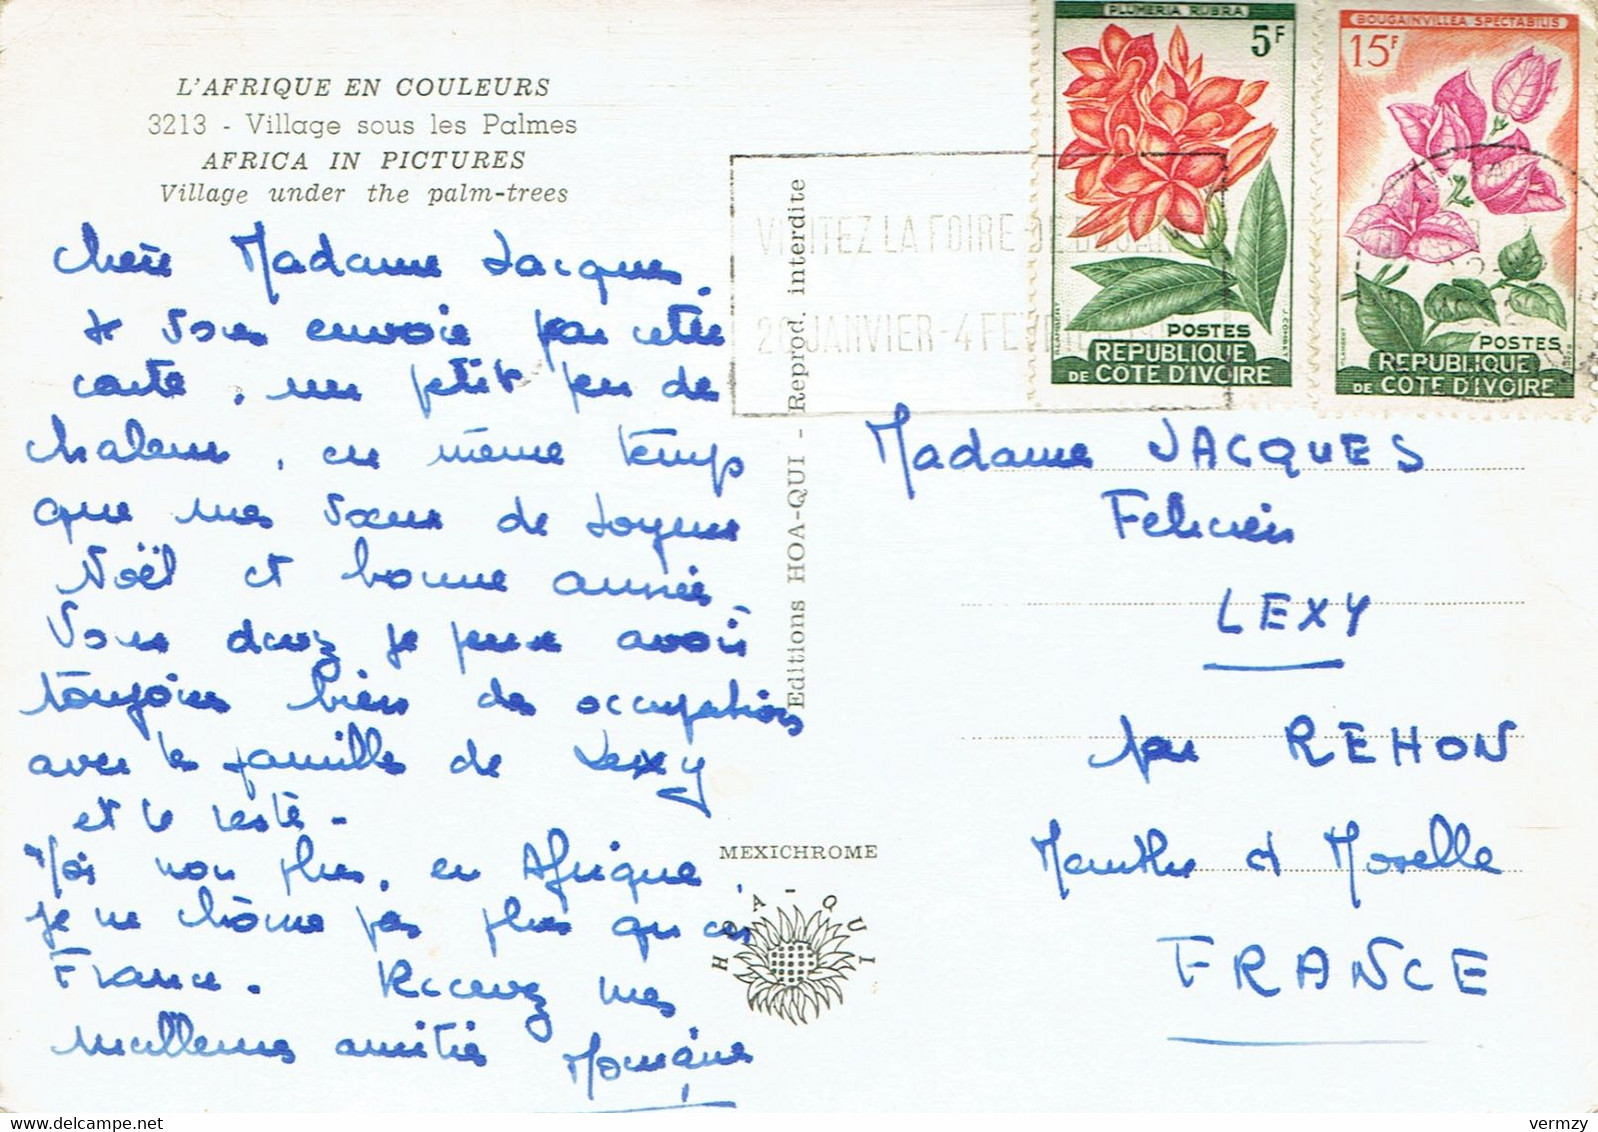 L'AFRIQUE EN COULEURS
3213 - Village sous les Palmes
AFRICA IN PICTURES
Village under the palm-trees
Chère Madame Jacques.
Je vous envoie par cette
carte, un petit peu de
chaleur, en même temps
que mes vœux de Joyeux
Noël et bonne année.
Vous devez je pense avoir
toujours bien des occupations
avec la famille de Lexy
et le reste -
Moi non plus, en Afrique,
je ne chôme pas plus qu'en
France. Recevez mes
meilleures amitiés Monique
Editions HOA-QUI - Reprod. interdite
MEXICHROME
HOA-QUI
VISITEZ LA FOIRE DE BOUAKE
JANVIER - 4 FEVRIER
PLUMERIA RUBRA
5F
POSTES
REPUBLIQUE
DE COTE D'IVOIRE
BOUGAINVILLEA SPECTABILIS
15F
POSTES
REPUBLIQUE
DE COTE D'IVOIRE
Madame JACQUES
Felicien
LEXY
par REHON
Meurthe et Moselle
FRANCE
vermzy